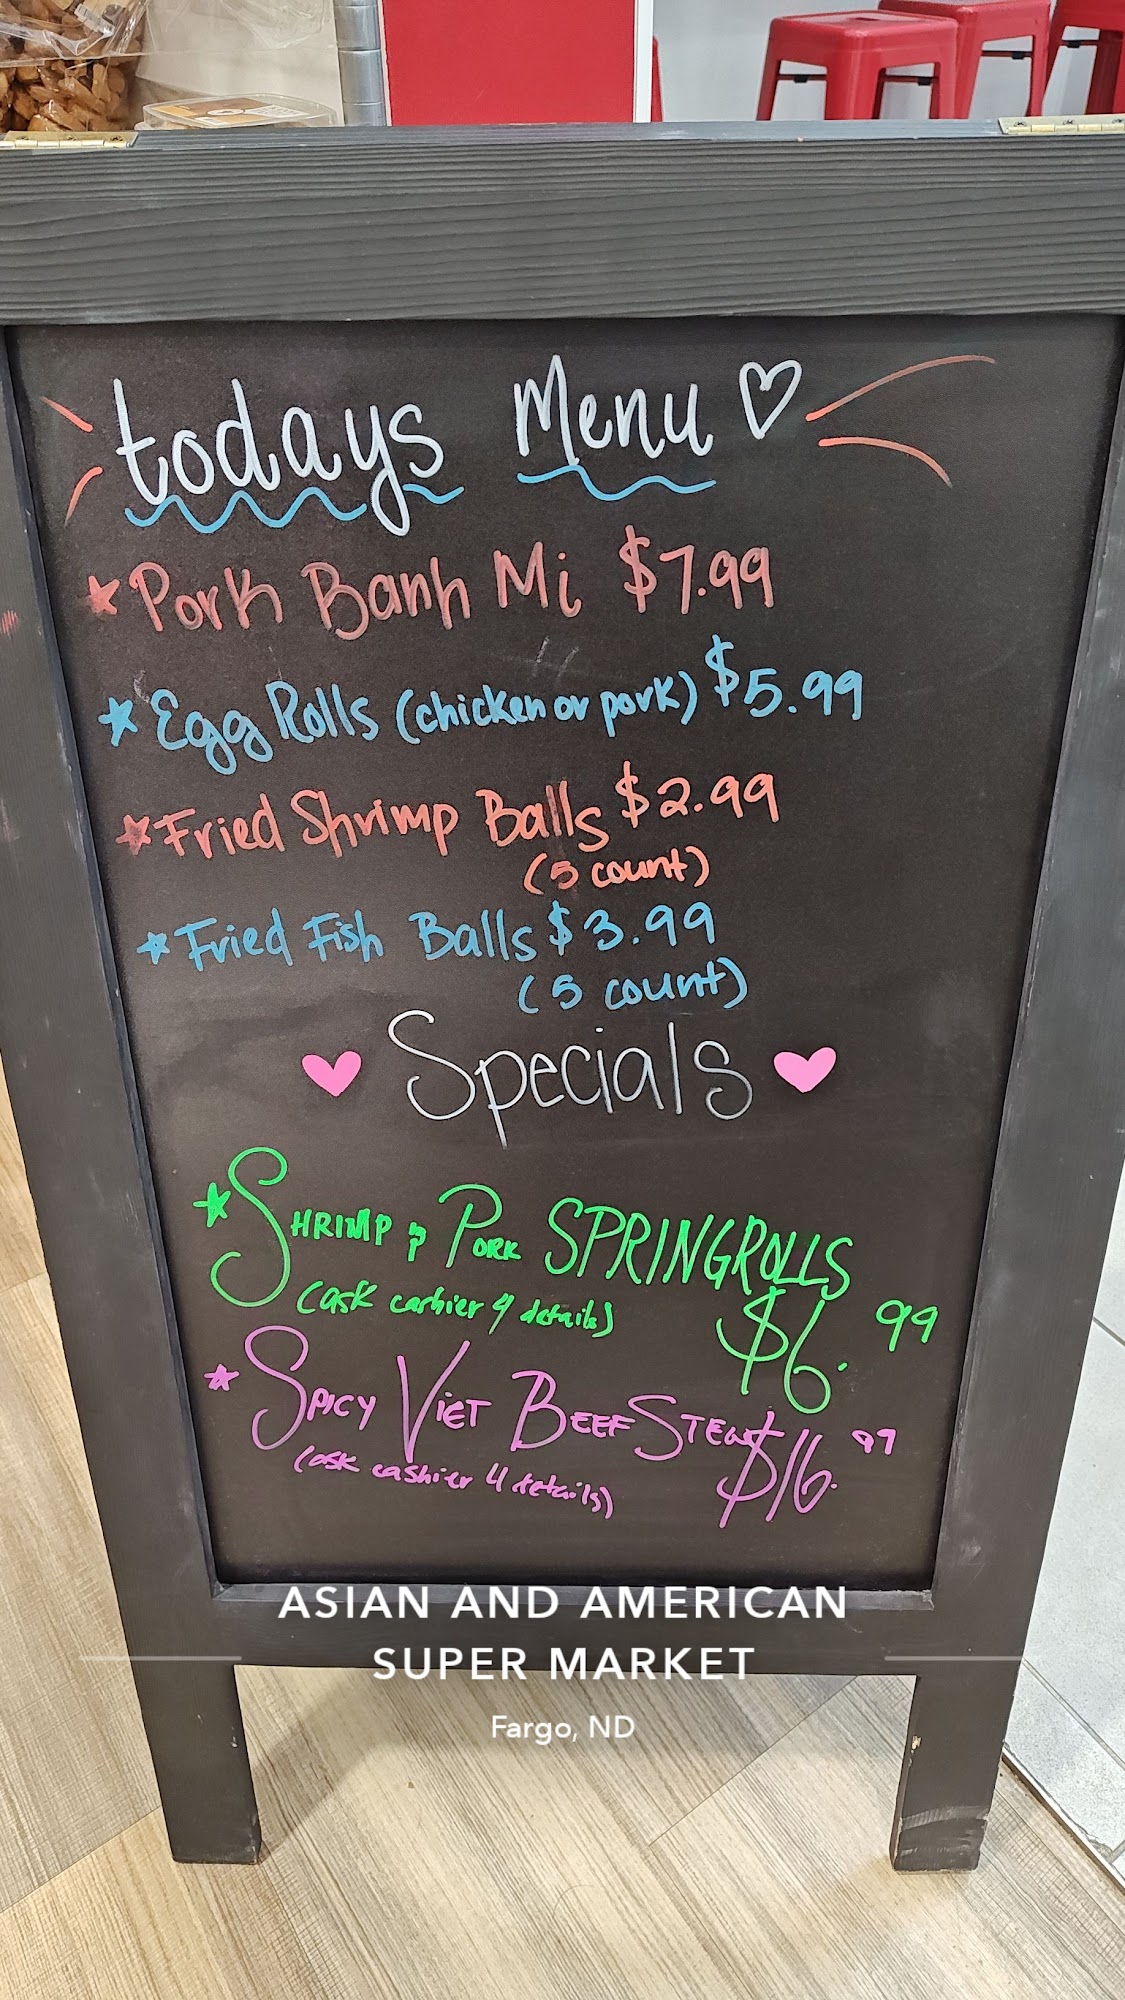 todays Menu
Pork Banh Mi $7.99
Egg Rolls (chicken or pork) $5.99
Fried Shrimp Balls $2.99
(5 count)
Fried Fish Balls $3.99
(5 count)
Specials
SHRIMP & PORK SPRINGROLLS
(ask cashier 4 details) $6.99
SPICY VIET BEEF STEW $16.99
(ask cashier 4 details)
ASIAN AND AMERICAN
SUPER MARKET
Fargo, ND